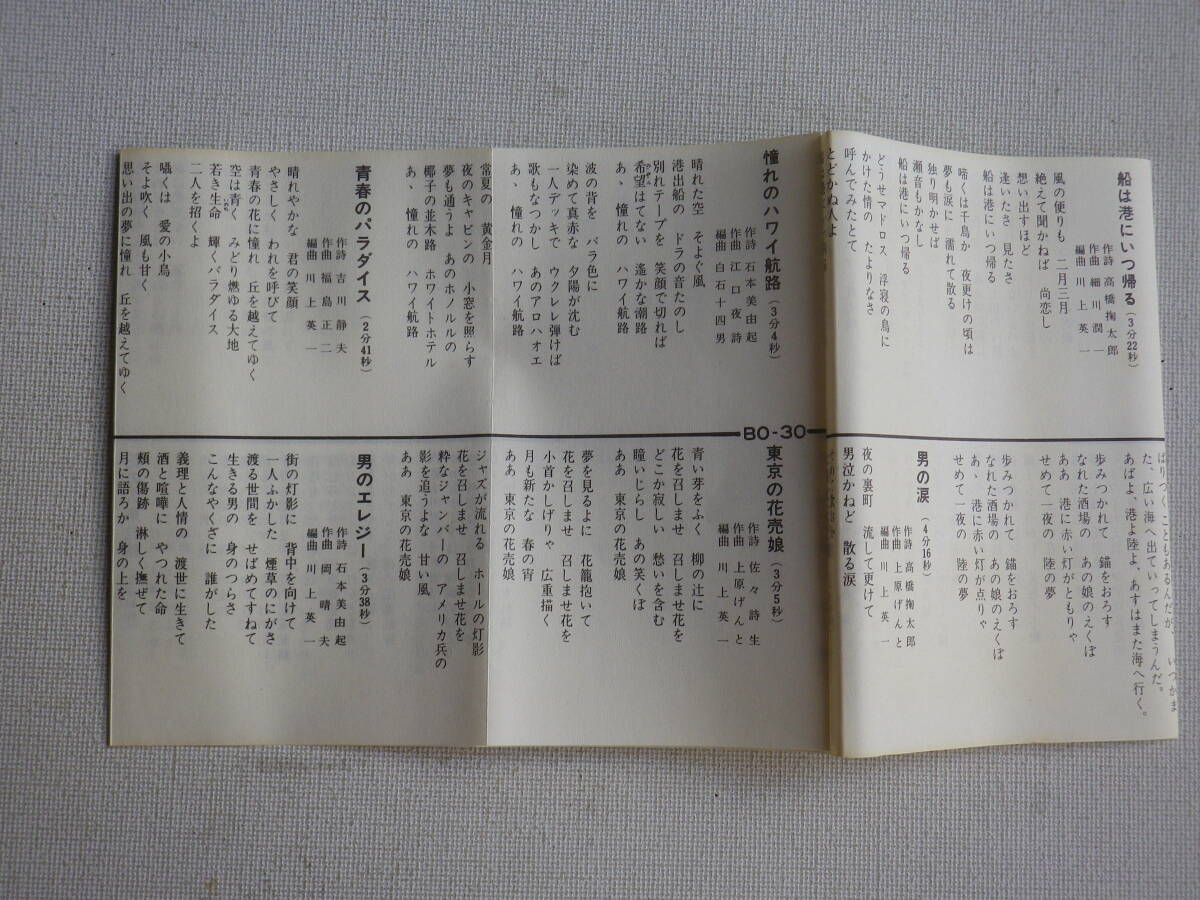 船は港にいつ帰る（3分22秒）
作詩 高橋掬太郎
作曲 細川潤一
編曲 川上英一
風の便りも 二月三月
絶えて聞かねば 尚恋し
想い出すほど
逢いたさ 見たさ
船は港にいつ帰る
啼くは千鳥か 夜更けの頃は
夢も涙に 濡れて散る
独り明かせば
瀬音もかなし
船は港にいつ帰る
どうせマドロス 浮寝の鳥に
かけた情の たよりなさ
呼んでみたとて
とどかぬ人よ
憧れのハワイ航路（3分4秒）
作詩 石本美由起
作曲 江口夜詩
編曲 白石十四男
晴れた空 そよぐ風
港出船の ドラの音たのし
別れテープを 笑顔で切れば
希望はてない 遙かな潮路
あゝ 憧れの ハワイ航路
波の背を バラ色に
染めて真赤な 夕陽が沈む
一人デッキで ウクレレ弾けば
歌もなつかし あのアロハオエ
あゝ 憧れの ハワイ航路
常夏の 黄金月
夜のキャビンの 小窓を照らす
夢も通うよ あのホノルルの
椰子の並木路 ホワイトホテル
あゝ 憧れの ハワイ航路
青春のパラダイス（2分41秒）
作詩 吉川静夫
作曲 福島正二
編曲 川上英一
晴れやかな 君の笑顔
やさしく われを呼びて
青春の花に憧れ 丘を越えてゆく
空は青く みどり燃ゆる大地
若き生命 輝くパラダイス
いのち
二人を招くよ
囁くは 愛の小鳥
そよ吹く 風も甘く
思い出の夢に憧れ 丘を越えてゆく
BO-30
ばりつくこともあるんだが、いつかま
た、広い海へ出ていってしまうんだ。
あばよ、港よ陸よ、あすはまた海へ行く。
歩みつかれて 錨をおろす
なれた酒場の あの娘のえくぼ
ああ 港に赤い灯がともりゃ
せめて一夜の 陸の夢
歩みつかれて 錨をおろす
なれた酒場の あの娘のえくぼ
あゝ 港に赤い灯が点りゃ
せめて一夜の 陸の夢
男の涙（4分16秒）
作詩 高橋掬太郎
作曲 上原げんと
編曲 川上英一
夜の裏町 流して更けて
男泣かねど 散る涙
東京の花売娘（3分5秒）
作詩 佐々詩生
作曲 上原げんと
編曲 川上英一
青い芽をふく 柳の辻に
花を召しませ 召しませ花を
どこか寂しい 愁いを含む
瞳いじらし あの笑くぼ
ああ 東京の花売娘
夢を見るよに 花籠抱いて
花を召しませ 召しませ花を
小首かしげりゃ 広重描く
月も新たな 春の宵
ああ 東京の花売娘
ジャズが流れる ホールの灯影
花を召しませ 召しませ花を
粋なジャンパーの アメリカ兵の
影を追うよな 甘い風
ああ 東京の花売娘
男のエレジー（3分38秒）
作詩 石本美由起
作曲 岡晴夫
編曲 川上英一
街の灯影に 背中を向けて
一人ふかした 煙草のにがさ
渡る世間を せばめてすねて
生きる男の 身のつらさ
こんなやくざに 誰がした
義理と人情の 渡世に生きて
酒と喧嘩に やつれた命
頬の傷跡 淋しく撫ぜて
月に語ろか 身の上を